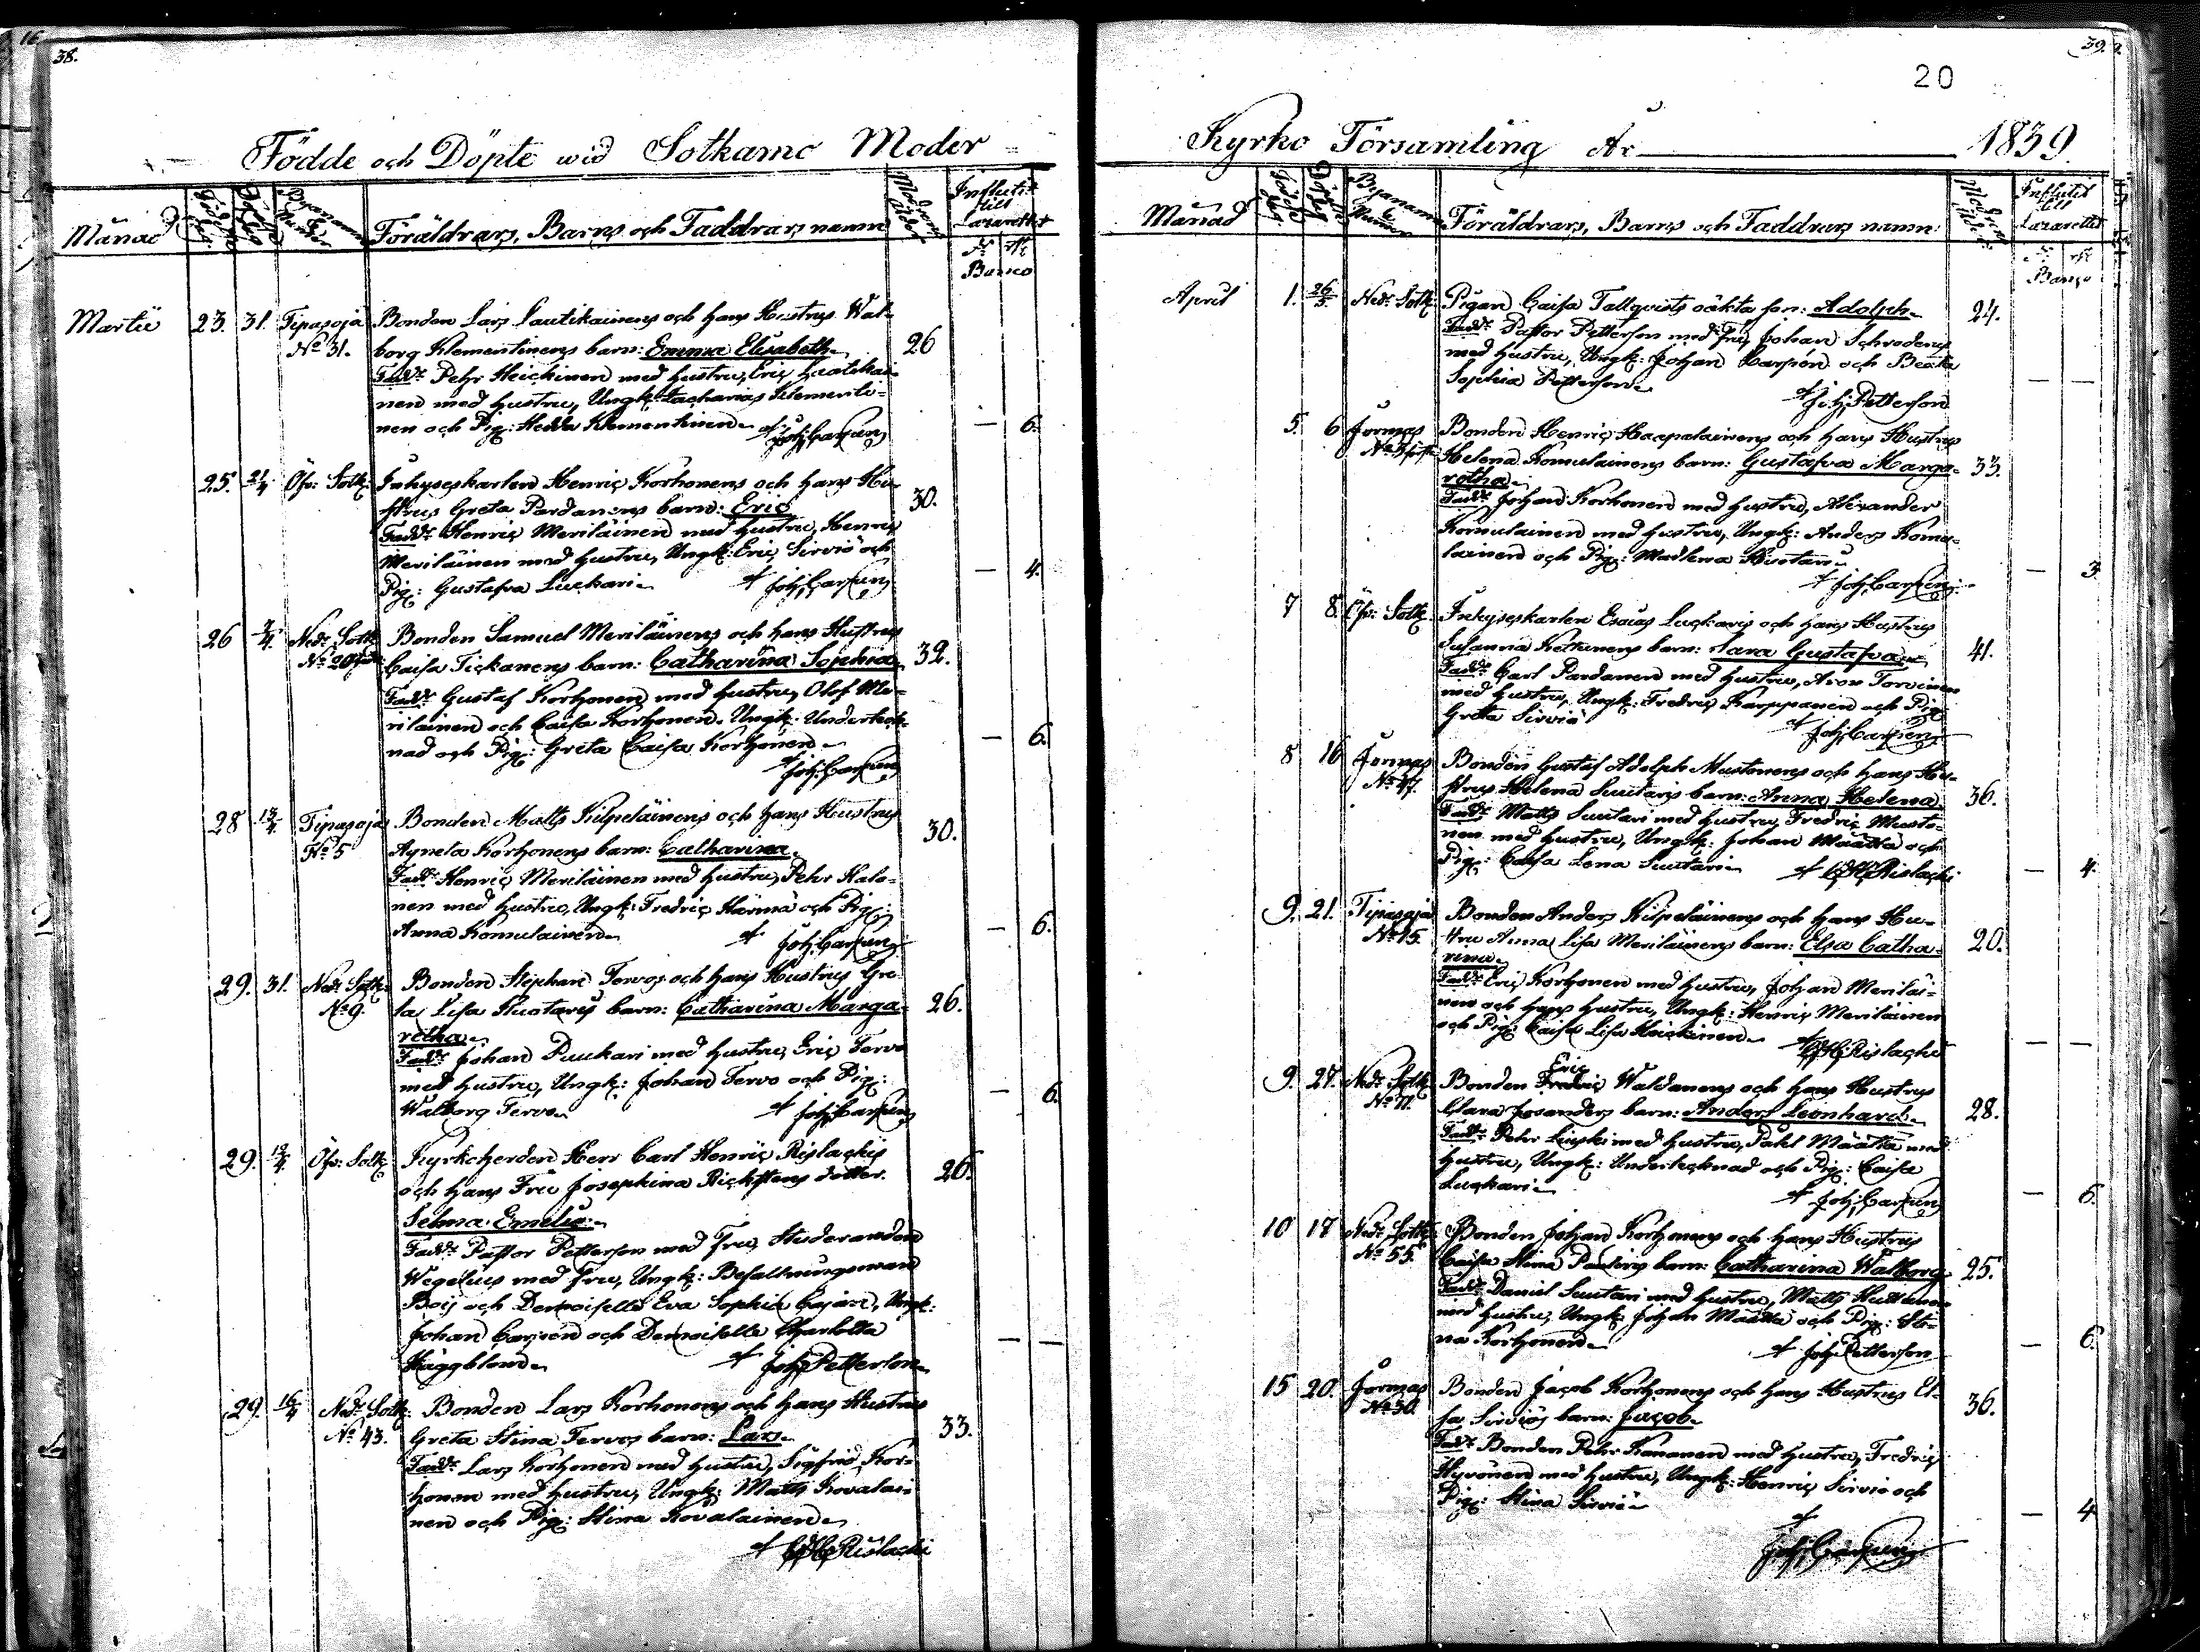 38.
Födde och Döpte wid Sotkamo Moder
Månad
Föräldrars, Barns och Faddrars namn
Influtit till Lazarettet
Banco
Martii 23. 31. Tipasoja Bonden Lars Lautikainens och hans Hustrus Wal-
No 31. borg Klementinens barn: Emma Elisabeth 26
Fadd: Pehr Heickinen med hustru, Eric
nen med hustru, Ungk: Zacharias Klementi-
nen och Pig: Hedda Klementinen af Joh: Carpen — 6.
25. 21/4 Öfv: Sotk: Inhyseskarlen Henric Korhonens och hans Hu-
strus Greta Pardanens barn: Eric 30.
Fadd: Henric Meriläinen med hustru, Henric
Meriläinen med hustru, Ungk: Eric Sirviö och
Pig: Gustafva Luckari af Joh: Carpen — 4.
26 7/4 Ned: Sotk: Bonden Samuel Meriläinens och hans Hustrus
No 20 Caisa Tickanens barn: Catharina Sophia 32.
Fadd: Gustaf Korhonen med hustru, Olof Me-
riläinen och Caisa Korhonen, Ungk: Underteck-
nad och Pig: Greta Caisa Korhonen — 6.
af Joh: Carpen
28 13/4 Tipasoja Bonden Matts Kilpeläinens och hans Hustrus
No 5 Agneta Korhonens barn: Catharina 30.
Fadd: Henric Meriläinen med hustru, Pehr Halo-
nen med hustru, Ungk: Fredric Härmä och Pig:
Anna Komulainen af Joh: Carpen — 6.
29. 31. Ned: Sotk: Bonden Stephan Tervos och hans Hustrus Gre-
No 9. ta Lisa Huotaris barn: Catharina Marga- 26.
retha
Fadd: Johan Puukari med hustru, Eric Tervo
med hustru, Ungk: Johan Tervo och Pig:
Walborg Tervo af Joh: Carpen — 6.
29. 13/4 Öfv: Sotk: Kyrkoherden Herr Carl Henric Rislachis
och hans Fru Josephina Rickstens dotter. 26.
Selma Emelie
Fadd: Pastor Petterson med Fru, Studeranden
Wegelius med Fru, Ungk: Befallningsman
Boij och Demoiselle Eva Sophia Cajan, Ungk:
Johan Carpen och Demoiselle Charlotta
Häggblom af Joh: Petterson — —
29. 16/4 Ned: Sotk: Bonden Lars Korhonens och hans Hustrus
No 43. Greta Stina Tervos barn: Lars 33.
Fadd: Lars Korhonen med hustru, Sigfrid Kor-
honen med hustru, Ungk: Matts Kovalai-
nen och Pig: Stina Kovalainen
af C H Rislachi
39.
20
Kyrko Församling År 1839.
Månad
Föräldrars, Barns och Faddrars namn
Influtit till Lazarettet
Banco
April 1. 26/5 Ned: Sotk: Pigan Caisa Tallqvists oäkta son: Adolph 24.
Fadd: Pastor Petterson med Fru, Johan Schroderus
med hustru, Ungk: Johan Carpén och Beata
Sophia Petterson — —
af Joh: Petterson
5. 6 Jormas Bonden Henric Haapalainens och hans Hustrus
Helena Komulainens barn: Gustafva Marga- 33.
retha
Fadd: Johan Korhonen med hustru, Alexander
Komulainen med hustru, Ungk: Anders Komu-
lainen och Pig: Madlena Huotari
af Joh: Carpen — 3
7 8. Öfv: Sotk: Inhyseskarlen Esaias Luckaris och hans Hustrus
Susanna Ketunens barn: Sara Gustafva 41.
Fadd: Carl Pardanen med hustru, Aron Torvinen
med hustru, Ungk: Fredric Karppanen och Pig:
Greta Sirviö af Joh: Carpen
8 16 Jormas Bonden Gustaf Adolph Mustonens och hans Hu-
No 47. strus Helena Suutaris barn: Anna Helena 36.
Fadd: Matts Suutari med hustru, Fredric Musto-
nen med hustru, Ungk: Johan Määttä och
Pig: Caisa Lena Suutari af C H Rislachi — 4.
9. 21. Tipasoja Bonden Anders Kilpeläinens och hans Hu-
No 15. stru Anna Lisa Meriläinens barn: Elsa Catha- 20.
rina
Fadd: Eric Korhonen med hustru, Johan Meriläi-
nen och hans hustru, Ungk: Henric Meriläinen
och Pig: Caisa Lisa Heickinen af C H Rislachi — —
9. 27. Ned: Sotk: Bonden Eric Waldanens och hans Hustrus
No 11. Clara Josanders barn: Anders Leonhard 28.
Fadd: Pehr med hustru, Påhl Määttä med
hustru, Ungk: Undertecknad och Pig: Caisa
Luckari af Joh: Carpen — 6.
10 17 Ned: Sotk: Bonden Johan Korhonens och hans Hustrus
No 55. Caisa Stina barn: Catharina Walborg 25.
Fadd: Daniel Suutari med hustru, Matts
med hustru, Ungk: Johan Määttä och Pig: Sti-
na Korhonen af Joh: Petterson — 6.
15 20. Jormas Bonden Jacob Korhonens och hans Hustrus El-
No 30. sa Sirviös barn: Jacob 36.
Fadd: Bonden Pehr Kananen med hustru, Fredric
Hyvönen med hustru, Ungk: Henric Sirviö och
Pig: Stina Sirviö — 4
af
Joh: Carpen